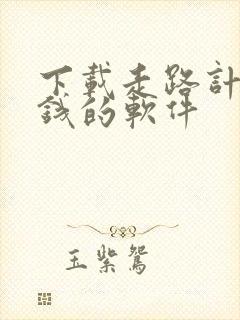 下載走路計
錢的軟件
玉紫鴛